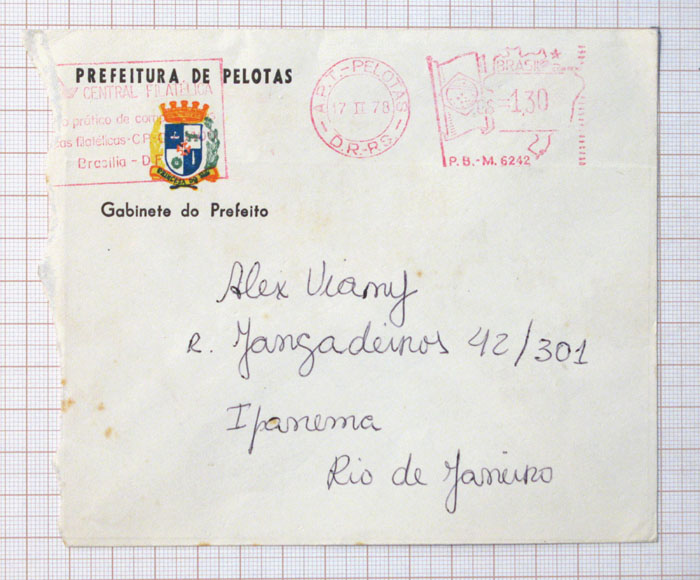 PREFEITURA DE PELOTAS
CENTRAL FILATÉLICA
prático de
filatélicas-C.P.
Brasília - D.F
Gabinete do Prefeito
A.P.T.-PELOTAS
17 II 78
D.R.-RS
BRASIL
1,30
P.B.-M. 6242
Alex Viany
R. Jangadeiros 42/301
Ipanema
Rio de Janeiro